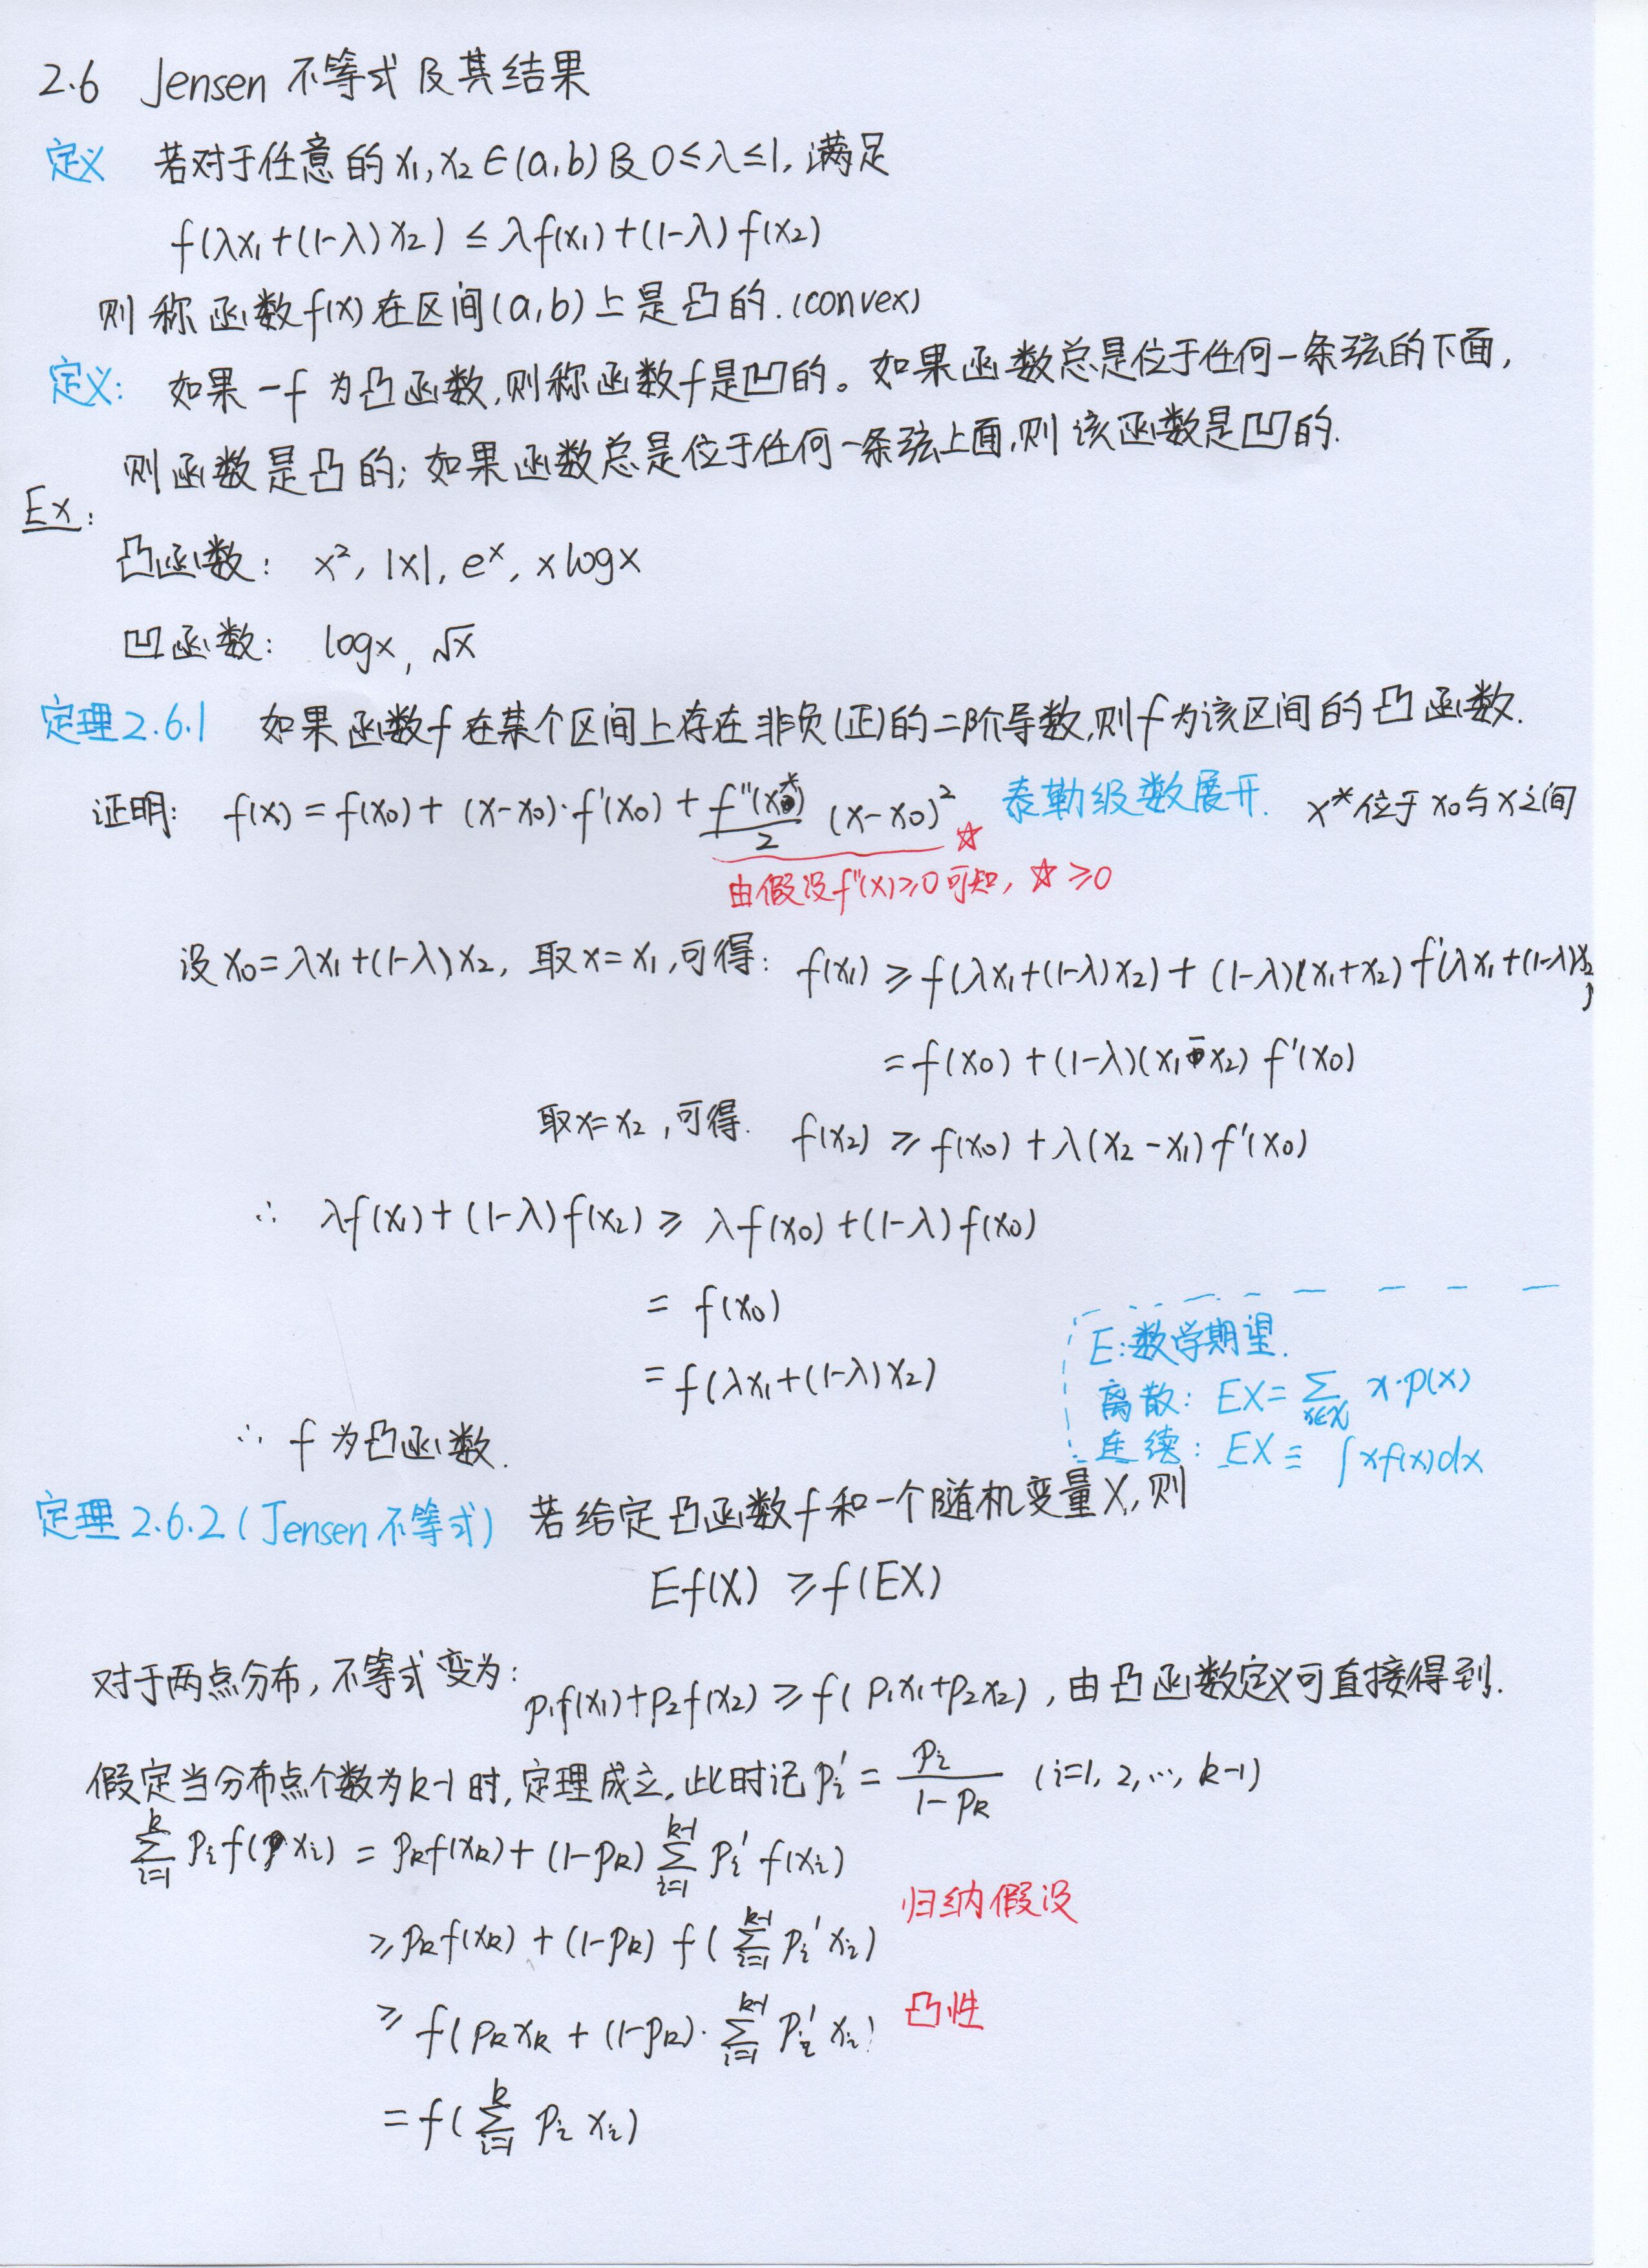 2.6 Jensen 不等式及其结果
定义 若对于任意的 x₁, x₂ ∈ (a, b) 及 0 ≤ λ ≤ 1, 满足
f(λx₁ + (1-λ) x₂) ≤ λf(x₁) + (1-λ) f(x₂)
则称函数 f(x) 在区间 (a, b) 上是凸的. (convex)
定义: 如果 -f 为凸函数, 则称函数 f 是凹的。如果函数总是位于任何一条弦的下面,
则函数是凸的; 如果函数总是位于任何一条弦上面, 则该函数是凹的.
Ex:
凸函数: x², |x|, eˣ, x log x
凹函数: log x, √x
定理 2.6.1 如果函数 f 在某个区间上存在非负(正)的二阶导数, 则 f 为该区间的凸函数.
证明: f(x) = f(x₀) + (x-x₀)·f'(x₀) + f''(x*)/2 (x-x₀)² ☆ 泰勒级数展开. x* 位于 x₀ 与 x 之间
由假设 f''(x) ≥ 0 可知, ☆ ≥ 0
设 x₀ = λx₁ + (1-λ)x₂, 取 x = x₁, 可得: f(x₁) ≥ f(λx₁ + (1-λ)x₂) + (1-λ)(x₁+x₂) f'(λx₁ + (1-λ)x₂)
= f(x₀) + (1-λ)(x₁-x₂) f'(x₀)
取 x = x₂, 可得. f(x₂) ≥ f(x₀) + λ(x₂-x₁) f'(x₀)
∴ λf(x₁) + (1-λ)f(x₂) ≥ λf(x₀) + (1-λ)f(x₀)
= f(x₀)
= f(λx₁ + (1-λ)x₂)
∴ f 为凸函数.
E: 数学期望.
离散: EX = ∑_{x∈X} x·p(x)
连续: EX = ∫xf(x)dx
定理 2.6.2 (Jensen 不等式) 若给定凸函数 f 和一个随机变量 X, 则
Ef(X) ≥ f(EX)
对于两点分布, 不等式变为: p₁f(x₁)+p₂f(x₂) ≥ f(p₁x₁+p₂x₂), 由凸函数定义可直接得到.
假定当分布点个数为 k-1 时, 定理成立, 此时记 pᵢ' = pᵢ/(1-pₖ) (i=1, 2, …, k-1)
∑_{i=1}^{k} pᵢ f(xᵢ) = pₖf(xₖ) + (1-pₖ) ∑_{i=1}^{k-1} pᵢ' f(xᵢ)
≥ pₖf(xₖ) + (1-pₖ) f(∑_{i=1}^{k-1} pᵢ' xᵢ) 归纳假设
≥ f(pₖxₖ + (1-pₖ)·∑_{i=1}^{k-1} pᵢ' xᵢ) 凸性
= f(∑_{i=1}^{k} pᵢ xᵢ)